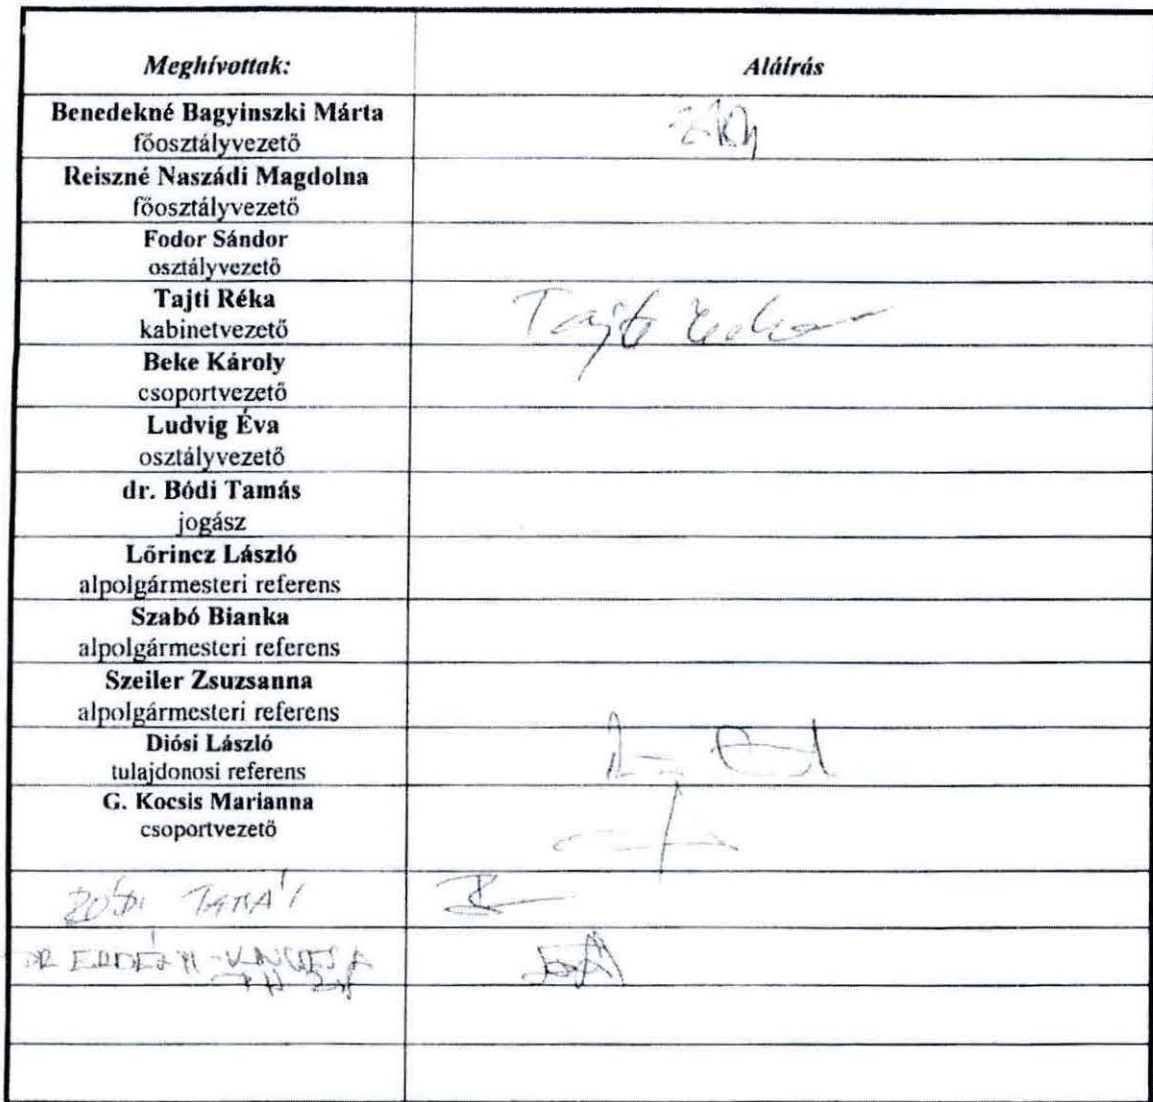 Meghívottak: Aláírás
Benedekné Bagyinszki Márta
főosztályvezető
Reiszné Naszádi Magdolna
főosztályvezető
Fodor Sándor
osztályvezető
Tajti Réka
kabinetvezető
Tajti Réka
Beke Károly
csoportvezető
Ludvig Éva
osztályvezető
dr. Bódi Tamás
jogász
Lőrincz László
alpolgármesteri referens
Szabó Bianka
alpolgármesteri referens
Szeiler Zsuzsanna
alpolgármesteri referens
Diósi László
tulajdonosi referens
G. Kocsis Marianna
csoportvezető
DR